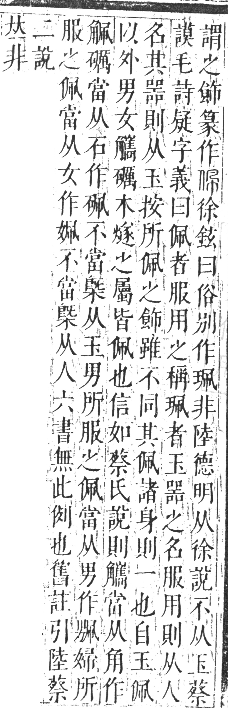 謂之飾篆作㑋徐鉉曰俗別作珮非陸德明从徐說不从玉蔡
謨毛詩疑字義曰佩者服用之稱珮者玉器之名服用則从人
名其器則从玉按所佩之飾雖不同其佩諸身則一也自玉佩
以外男女觿礪木燧之屬皆佩也信如蔡氏說則觿當从角作
礪當从石作不當槩从玉男所服之佩當从男作婦所
服之佩當从女作不當槩从人六書無此例也舊註引陸蔡
二說
𠀤非